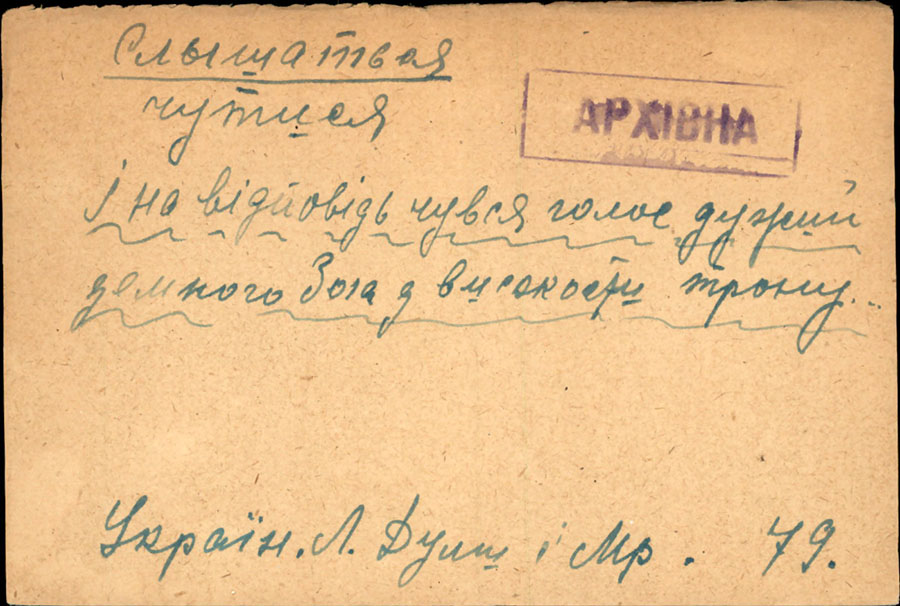 Слышаться
АРХІВНА
чутися
І на відповідь чувся голос дужий
земного бога з високости трону..
Україн. Л. Думи і Мр. 79.